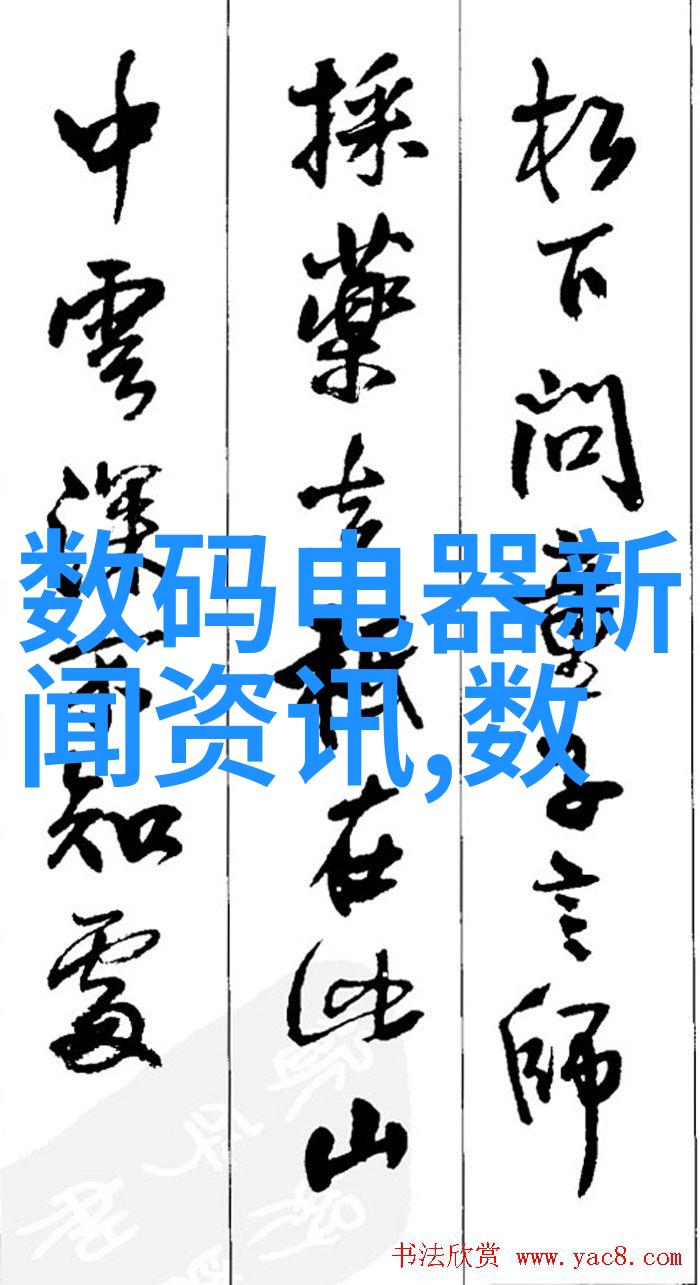 松下问童子言師
採藥去祇在此山
中雲深不知處
数码电器新
闻资讯,数
书法欣赏 www.yac8.com